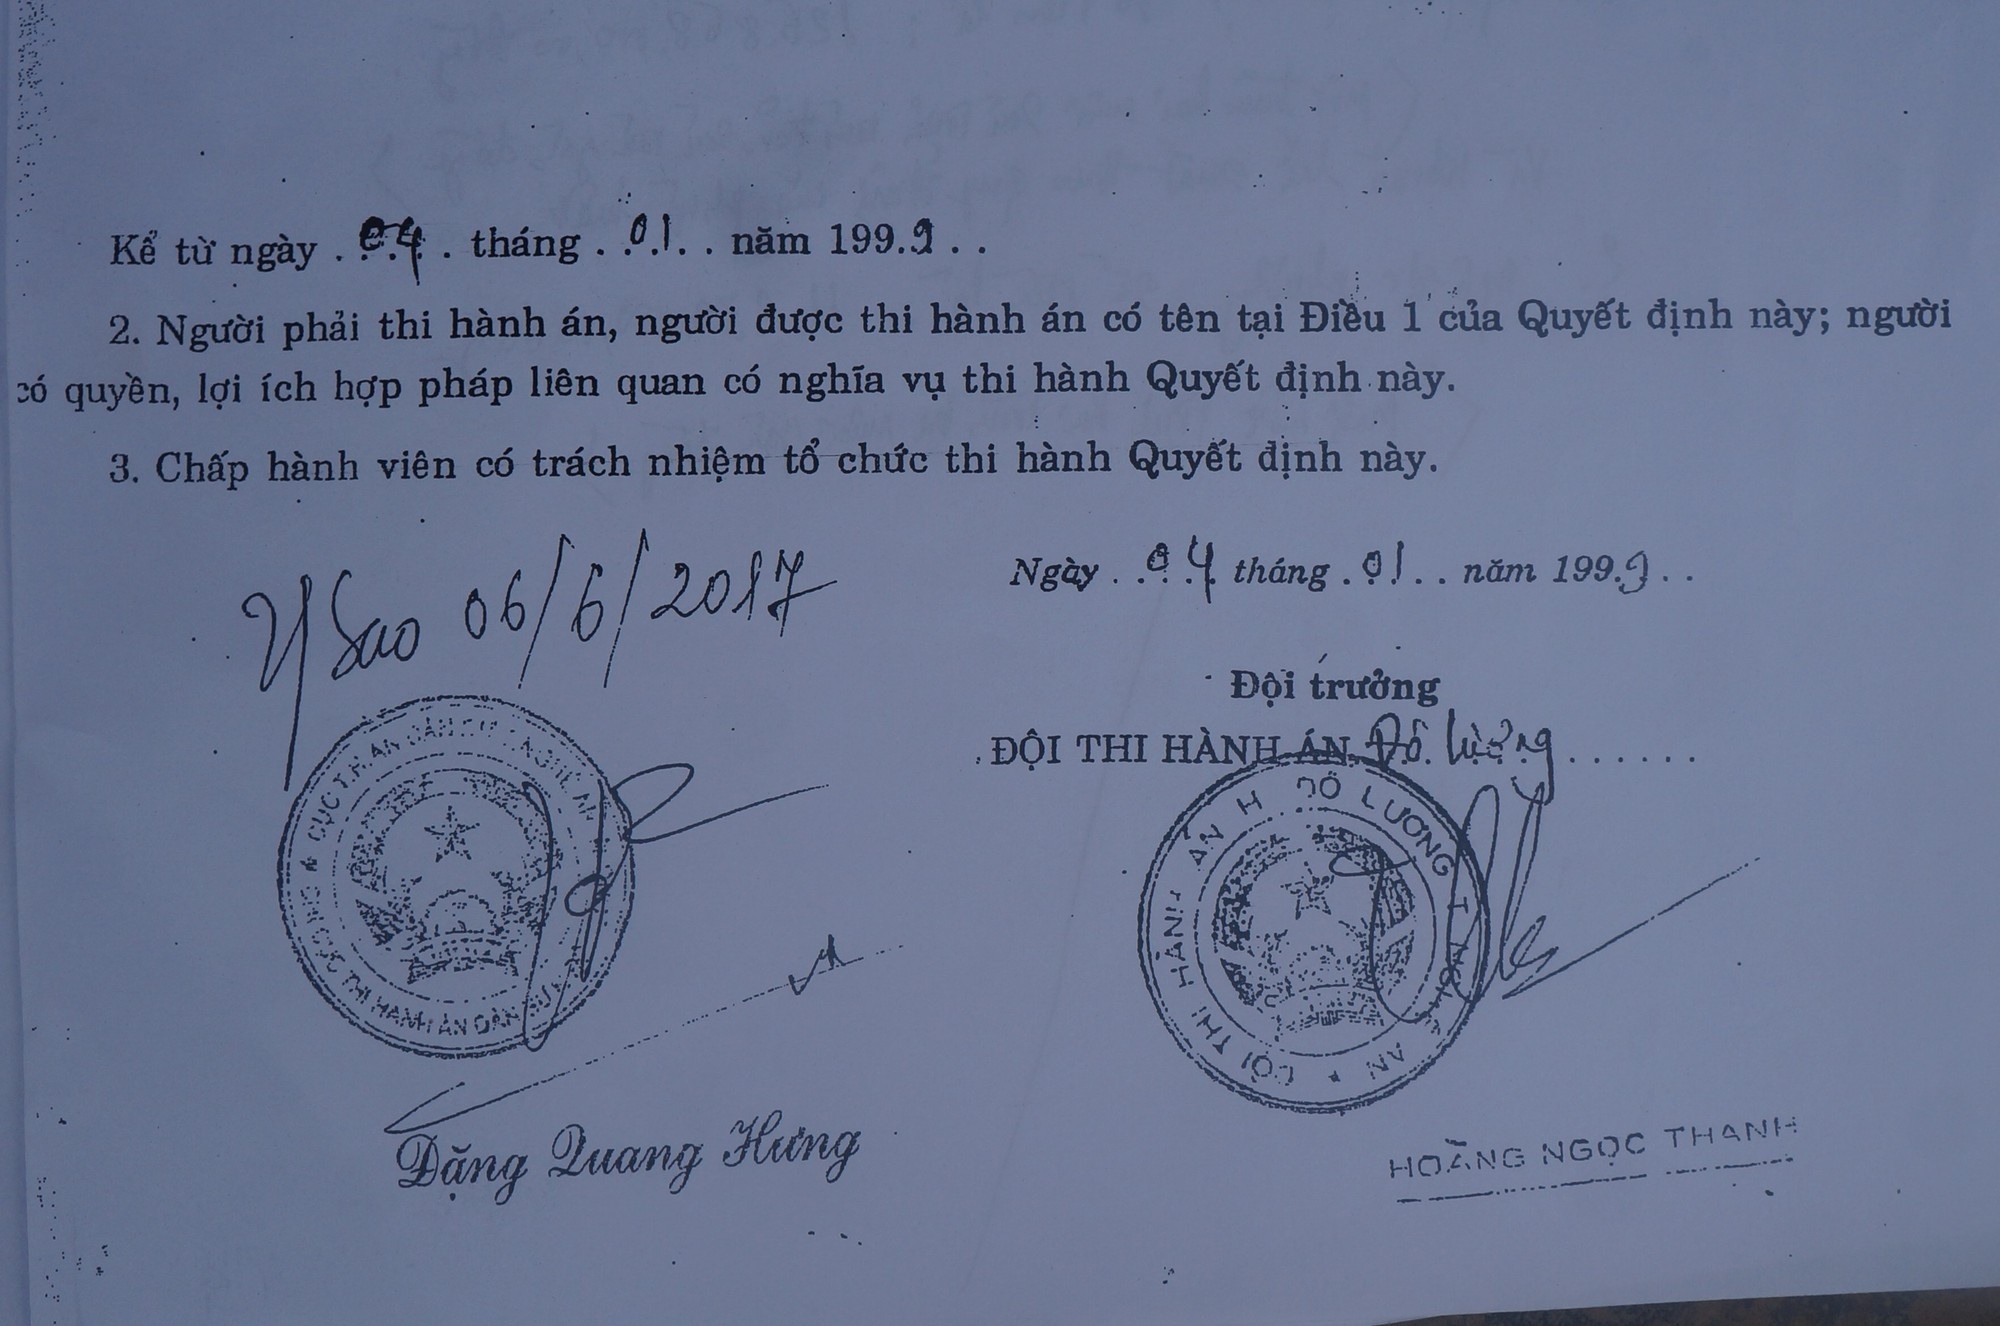 Kể từ ngày . 04 . tháng . 01 . . năm 199.9 . .
2. Người phải thi hành án, người được thi hành án có tên tại Điều 1 của Quyết định này; người
có quyền, lợi ích hợp pháp liên quan có nghĩa vụ thi hành Quyết định này.
3. Chấp hành viên có trách nhiệm tổ chức thi hành Quyết định này.
Y Sao 06/6/2017
Ngày . . 04 tháng . 01 . . năm 199.9 . .
Đội trưởng
ĐỘI THI HÀNH ÁN. Đô Lương . . . . . .
THI HÀNH ÁN DÂN SỰ
ĐỘI THI HÀNH ÁN H ĐÔ LƯƠNG T NGHỆ AN
Đặng Quang Hưng
HOÀNG NGỌC THANH